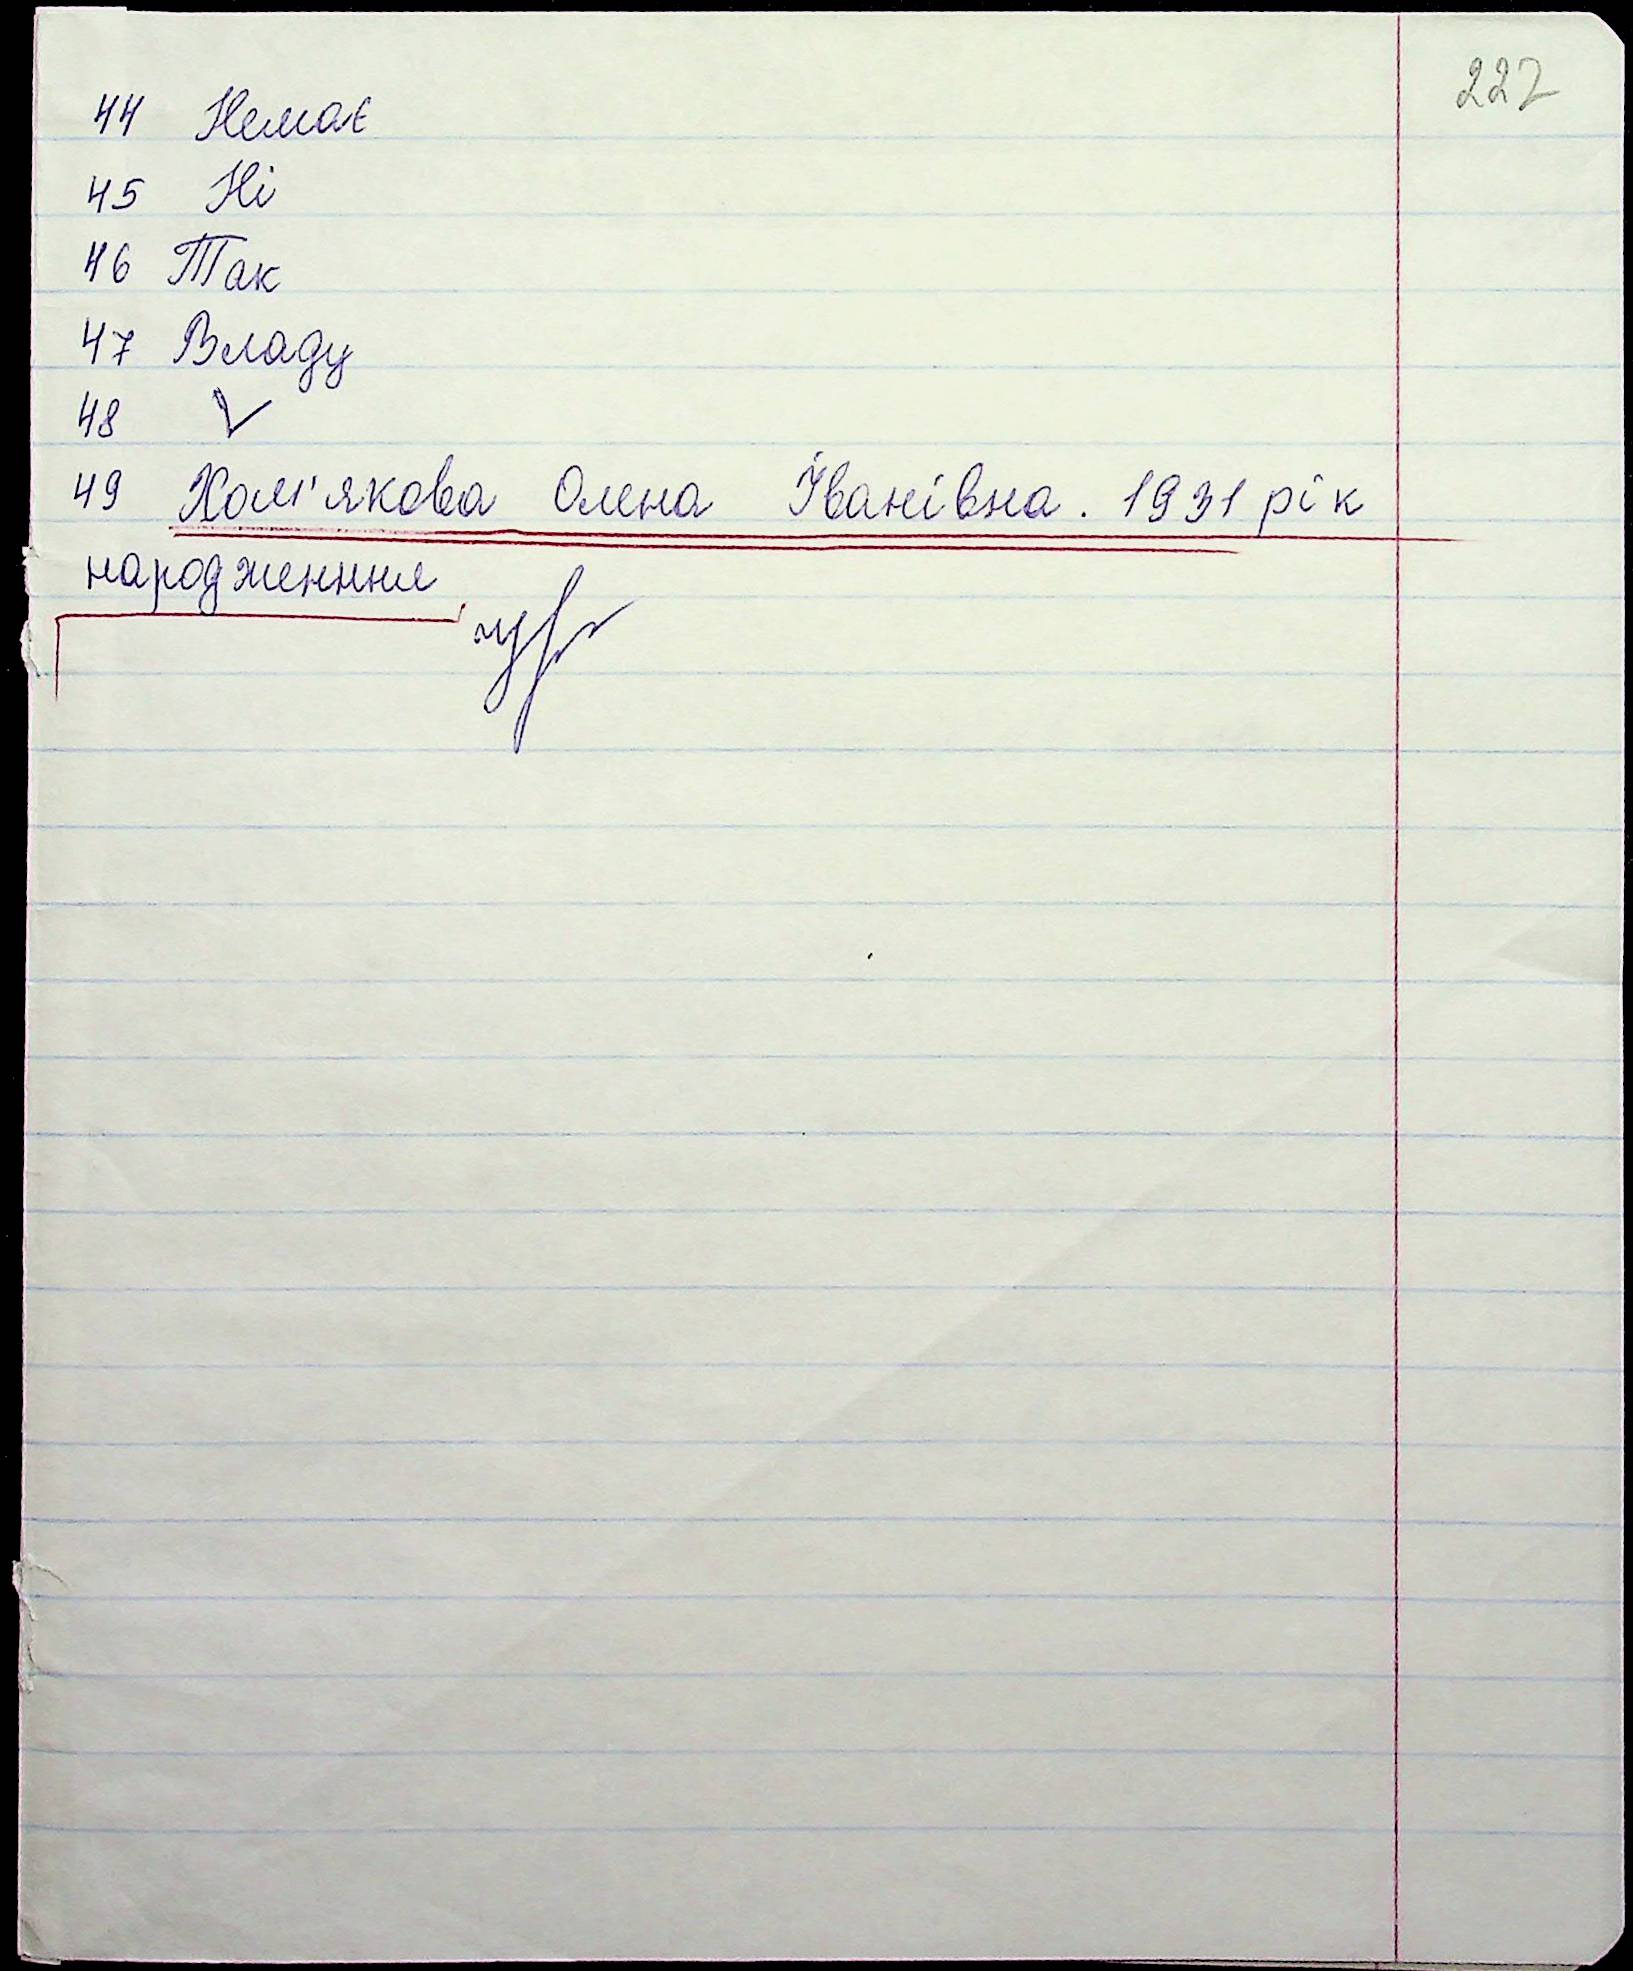 227
44 Немає
45 Ні
46 Так
47 Владу
48 ✓
49 Хом'якова Олена Іванівна. 1931 рік
народження